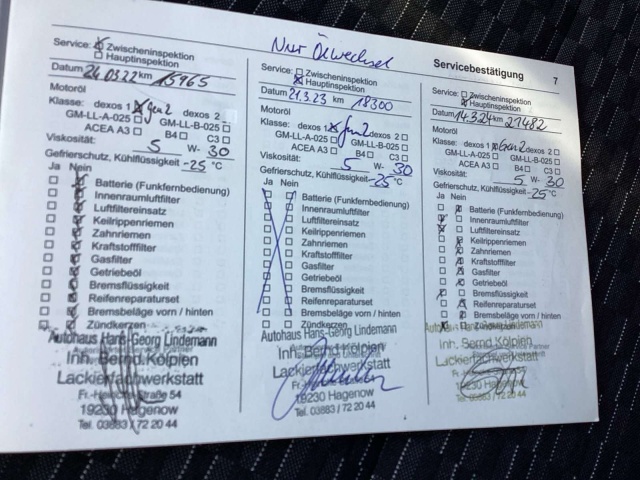 Nur Ölwechsel
Servicebestätigung 7
Service: Zwischeninspektion
Hauptinspektion
Datum 24.03.22 km 15965
Motoröl
Klasse: dexos 1 Gen 2 dexos 2
GM-LL-A-025 GM-LL-B-025
ACEA A3 B4 C3
Viskosität: 5 W- 30
Gefrierschutz, Kühlflüssigkeit -25 °C
Ja Nein
Batterie (Funkfernbedienung)
Innenraumluftfilter
Luftfiltereinsatz
Keilrippenriemen
Zahnriemen
Kraftstofffilter
Gasfilter
Getriebeöl
Bremsflüssigkeit
Reifenreparaturset
Bremsbeläge vorn / hinten
Zündkerzen
Autohaus Hans-Georg Lindemann
Inh. Bernd Kölpien
Lackierfachwerkstatt
54
19230 Hagenow
Tel. 03883 / 72 20 44
Service: Zwischeninspektion
Hauptinspektion
Datum 21.3.23 km 18300
Motoröl
Klasse: dexos 1 Gen2 dexos 2
GM-LL-A-025 GM-LL-B-025
ACEA A3 B4 C3
Viskosität: 5 W- 30
Gefrierschutz, Kühlflüssigkeit -25 °C
Ja Nein
Batterie (Funkfernbedienung)
Innenraumluftfilter
Luftfiltereinsatz
Keilrippenriemen
Zahnriemen
Kraftstofffilter
Gasfilter
Getriebeöl
Bremsflüssigkeit
Reifenreparaturset
Bremsbeläge vorn / hinten
Zündkerzen
Autohaus Hans-Georg Lindemann
Inh. Bernd Kölpien
Lackierfachwerkstatt
19230 Hagenow
Tel. 03883 / 72 20 44
Service: Zwischeninspektion
Hauptinspektion
Datum 14.3.24 km 21482
Motoröl
Klasse: dexos 1 Gen2 dexos 2
GM-LL-A-025 GM-LL-B-025
ACEA A3 B4 C3
Viskosität: 5 W- 30
Gefrierschutz, Kühlflüssigkeit -25 °C
Ja Nein
Batterie (Funkfernbedienung)
Innenraumluftfilter
Luftfiltereinsatz
Keilrippenriemen
Zahnriemen
Kraftstofffilter
Gasfilter
Getriebeöl
Bremsflüssigkeit
Reifenreparaturset
Bremsbeläge vorn / hinten
Zündkerzen
Autohaus Hans-Georg Lindemann
Inh. Bernd Kölpien
Lackierfachwerkstatt
19230 Hagenow
Tel. 03883 / 72 20 44